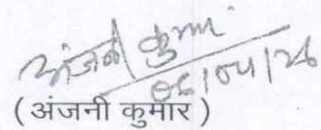 अंजनी कुमार
06/04/26
(अंजनी कुमार)